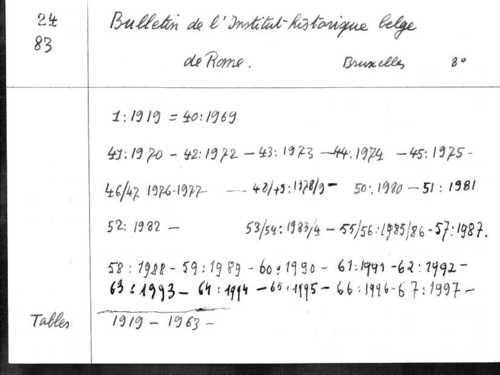 24 Bulletin de l'Institut historique belge
83 de Rome. Bruxelles 8°
1:1919 = 40:1969
41:1970 - 42:1972 - 43:1973 - 44:1974 - 45:1975 -
46/47 1976-1977 - 48/49:1978/9 - 50:1980 - 51:1981
52:1982 - 53/54:1983/4 - 55/56:1985/86 - 57:1987.
58:1988 - 59:1989 - 60:1990 - 61:1991 - 62:1992 -
63:1993 - 64:1994 - 65:1995 - 66:1996 - 67:1997 -
Tables 1919 - 1963 -